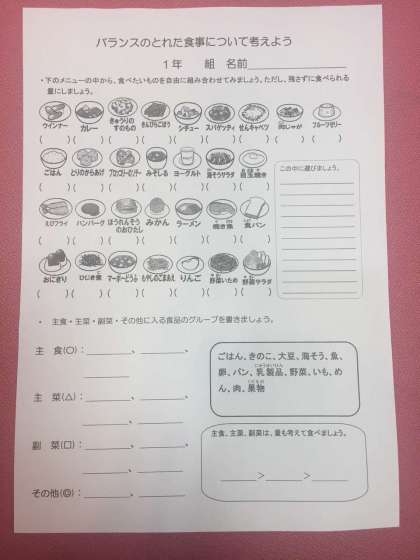 バランスのとれた食事について考えよう
1年　組　名前
・下のメニューの中から、食べたいものを自由に組み合わせてみましょう。ただし、残さずに食べられる
量にしましょう。
ウインナー　カレー　きゅうりのすのもの　きんぴらごぼう　シチュー　スパゲッティ　せんキャベツ　肉じゃが　フルーツゼリー
(　)　(　)　(　)　(　)　(　)　(　)　(　)　(　)　(　)
ごはん　とりのからあげ　ブロッコリーのソテー　みそしる　ヨーグルト　海そうサラダ　目玉焼き
(　)　(　)　(　)　(　)　(　)　(　)　(　)
この中に選びましょう。
えびフライ　ハンバーグ　ほうれんそうのおひたし　みかん　ラーメン　焼き魚　食パン
(　)　(　)　(　)　(　)　(　)　(　)　(　)
おにぎり　ひじき煮　マーボーどうふ　もやしのごまあえ　りんご　野菜いため　野菜サラダ
(　)　(　)　(　)　(　)　(　)　(　)　(　)
・　主食・主菜・副菜・その他に入る食品のグループを書きましょう。
主　食(○)：　、　、
主　菜(△)：　、　、
、
副　菜(□)：　、　、
、
その他(◎)：　、
ごはん、きのこ、大豆、海そう、魚、
卵、パン、乳製品、野菜、いも、め
ん、肉、果物
主食、主菜、副菜は、量も考えて食べましょう。
＞　＞